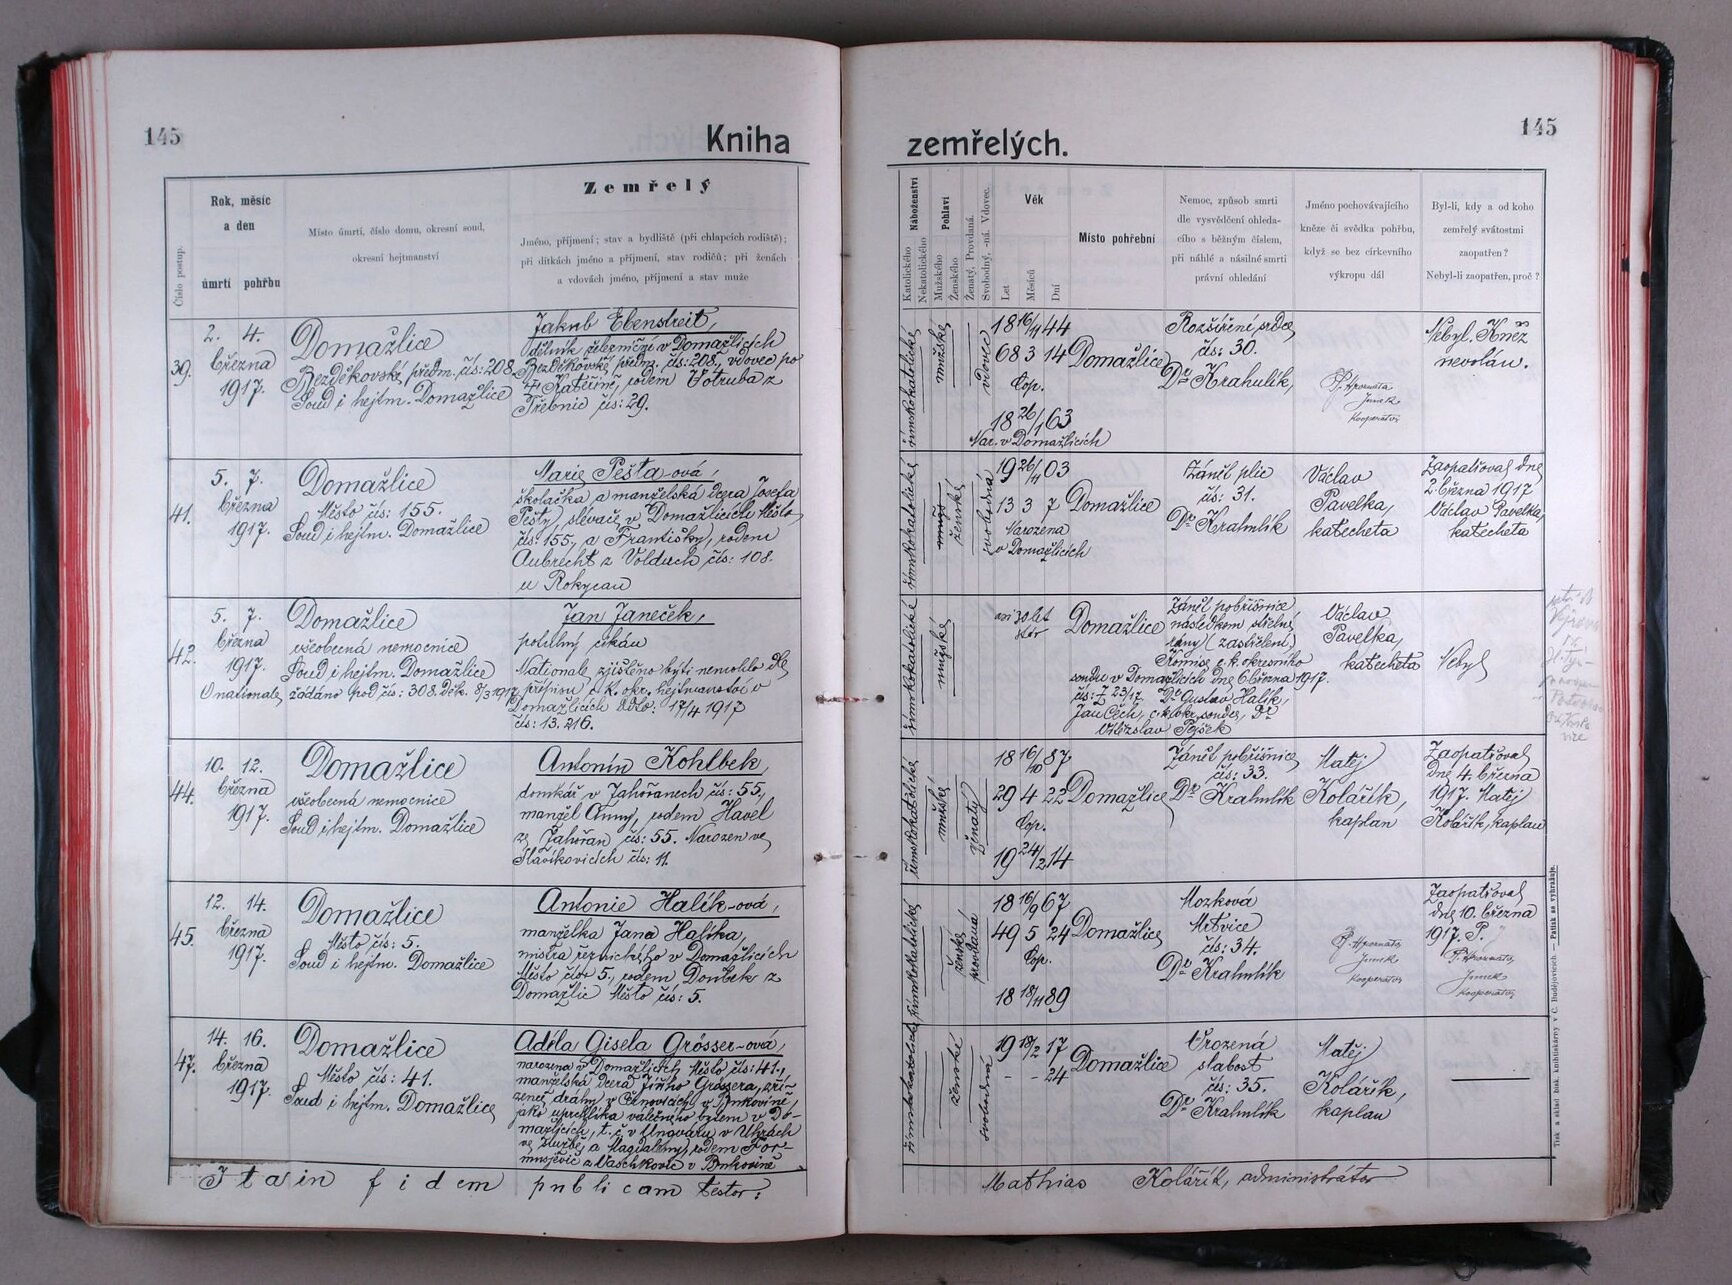 145
Kniha
zemřelých.
145
Číslo postup.
Rok, měsíc
a den
úmrtí pohřbu
Místo úmrtí, číslo domu, okresní soud,
okresní hejtmanství
Zemřelý
Jméno, příjmení; stav a bydliště (při chlapcích rodiště);
při dítkách jméno a příjmení, stav rodičů; při ženách
a vdovách jméno, příjmení a stav muže
Náboženství
Katolického
Nekatolického
Pohlaví
Mužského
Ženského
Ženatý, Provdaná.
Svobodný, -ná. Vdovec.
Věk
Let
Měsíců
Dní
Místo pohřební
Nemoc, způsob smrti
dle vysvědčení ohleda-
cího s běžným číslem,
při náhlé a násilné smrti
právní ohledání
Jméno pochovávajícího
kněze či svědka pohřbu,
když se bez církevního
výkropu dál
Byl-li, kdy a od koho
zemřelý svátostmi
zaopatřen?
Nebyl-li zaopatřen, proč?
39.
2. 4.
března
1917.
Domažlice
Bezděkovské předm. čís: 208
Soud i hejtm. Domažlice
Jakub Ebenstreit,
dělník železniční v Domažlicích
Bezděkovské předm. čís: 208, vdovec po
Kateřině, rodem Votruba z
Třebnic čís: 29.
římskokatolické
mužské
vdovec
18 16/11 44
68 3 14
Cop.
18 26/1 63
Nar. v Domažlicích
Domažlice
Rozšíření srdce
čís: 30.
Dr Krahulík,
P. Hroznata
Jumek
kooperator
Nebyl. Kněz
nevolán.
41.
5. 7.
března
1917.
Domažlice
Město čís: 155.
Soud i hejtm. Domažlice
Marie Pešta-ová,
školačka a manželská dcera Josefa
Pešty, slévače v Domažlicích Město
čís: 155, a Františky, rodem
Aubrecht z Volduch čís: 108.
u Rokycan
římskokatolické
mužs
ženské
svobodná
19 26/11 03
13 3 7
Narozena
v Domažlicích
Domažlice
Zánět plic
čís: 31.
Dr Krahulík
Václav
Pavelka,
katecheta
Zaopatřoval dne
2. března 1917
Václav Pavelka,
katecheta
42.
5. 7.
března
1917.
Domažlice
všeobecná nemocnice
Soud i hejtm. Domažlice
O nationale žádáno pod čís: 308. děk. 8/3 1917
Jan Janeček,
potulný cikán
Nationale zjištěno býti nemohlo dle
přípisu c. k. okr. hejtmanství v
Domažlicích ddto: 17/4 1917
čís: 13.216.
římskokatolické
mužské
asi 30 let
stár
Domažlice
Zánět pobřišnice
následkem střelné
rány (zastřelení)
Komise c. k. okresního
soudu v Domažlicích dne 6 března 1917.
čís: Z 23/17. Dr Gustav Halík,
Jan Čech, c. k. okr. soudce, Dr
Vítězslav Pejšek
Václav
Pavelka,
katecheta
Nebyl
44.
10. 12.
března
1917.
Domažlice
všeobecná nemocnice
Soud i hejtm. Domažlice
Antonín Kohlbek,
domkář v Zahořanech čís: 55,
manžel Anny, rodem Havel
ze Zahořan čís: 55. Narozen ve
Slavíkovicích čís: 11.
římskokatolické
mužské
ženatý
18 16/10 87
29 4 22
Cop.
19 24/2 14
Domažlice
Zánět pobřišnice
čís: 33.
Dr Krahulík
Matěj
Kolářík,
kaplan
Zaopatřoval
dne 4. března
1917. Matěj
Kolářík, kaplan
45.
12. 14.
března
1917.
Domažlice
Město čís: 5.
Soud i hejtm. Domažlice
Antonie Halík-ová,
manželka Jana Halíka,
mistra řeznického v Domažlicích
Město číslo 5, rodem Doubek z
Domažlic Město čís: 5.
římskokatolické
ženské
provdaná
18 16/9 67
49 5 24
Cop.
18 18/11 89
Domažlice
Mozková
Mrtvice
čís: 34.
Dr Krahulík
P. Hroznata
Jumek
kooperator
Zaopatřoval
dne 10. března
1917. P.
P. Hroznata
Jumek
kooperator
47.
14. 16.
března
1917.
Domažlice
Město čís: 41.
Soud i hejtm. Domažlice
Adéla Gisela Grösser-ová,
narozena v Domažlicích Město čís: 41.,
manželská dcera Jiřího Grössera, zří-
zence dráhy v Černovicích v Bukovině,
jako uprchlíka válečného bytem v Do-
mažlicích, t. č. v Ungváru v Uhrách
ve službě, a Magdaleny, rodem For-
musjevič z Vaschkovic v Bukovině
římskokatolické
ženské
svobodná
19 18/2 17
- - 24
Domažlice
Vrozená
slabost
čís: 35.
Dr Krahulík
Matěj
Kolářík,
kaplan
Ita in fidem publicam testor:
Mathias Kolářík, administrátor
Tisk a sklad bisk. knihtiskárny v Č. Budějovicích. — Patisk se vyhražuje.